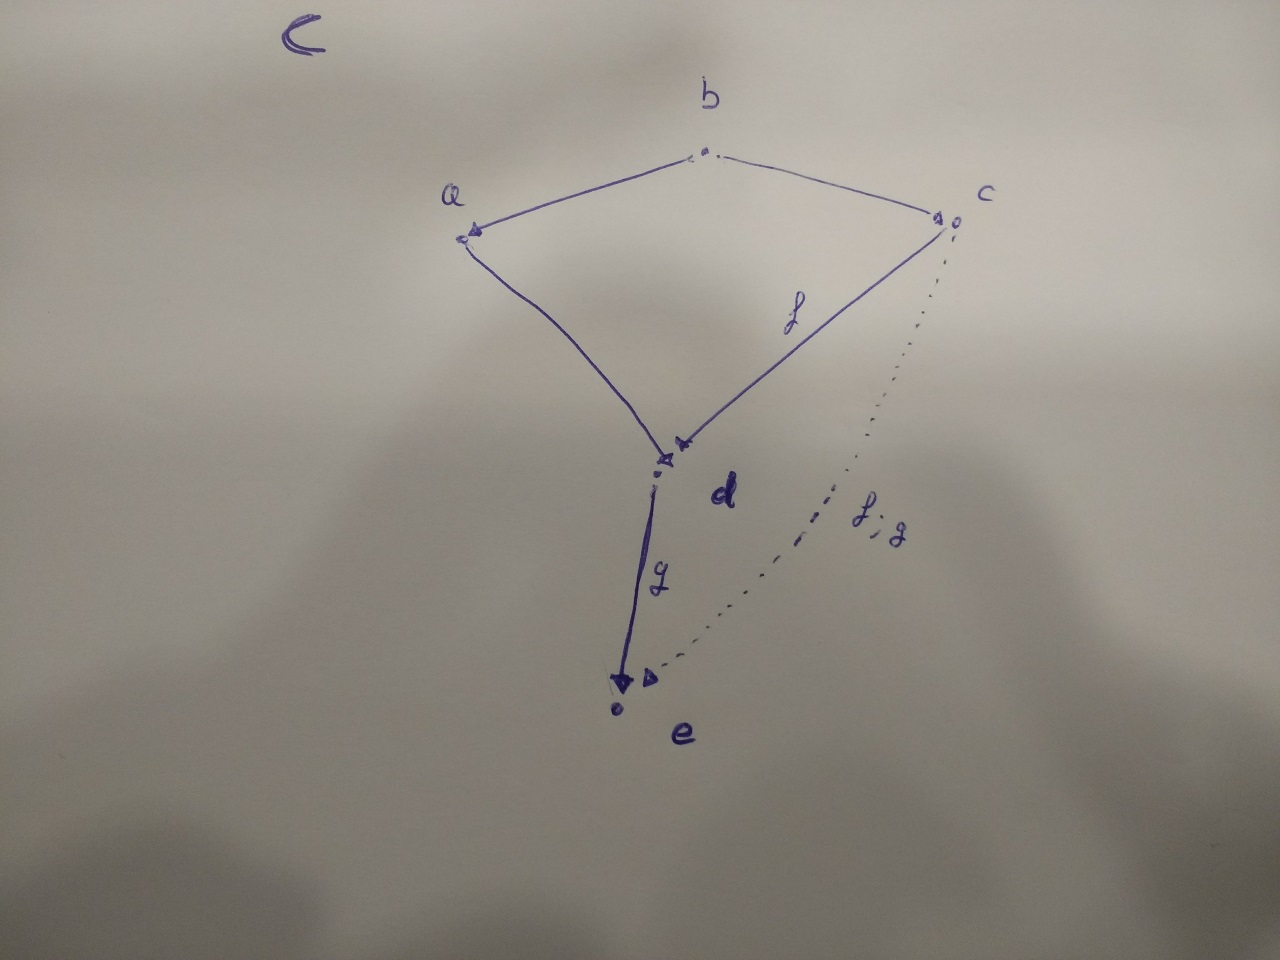 C
b
a
c
f
d
f;g
g
e